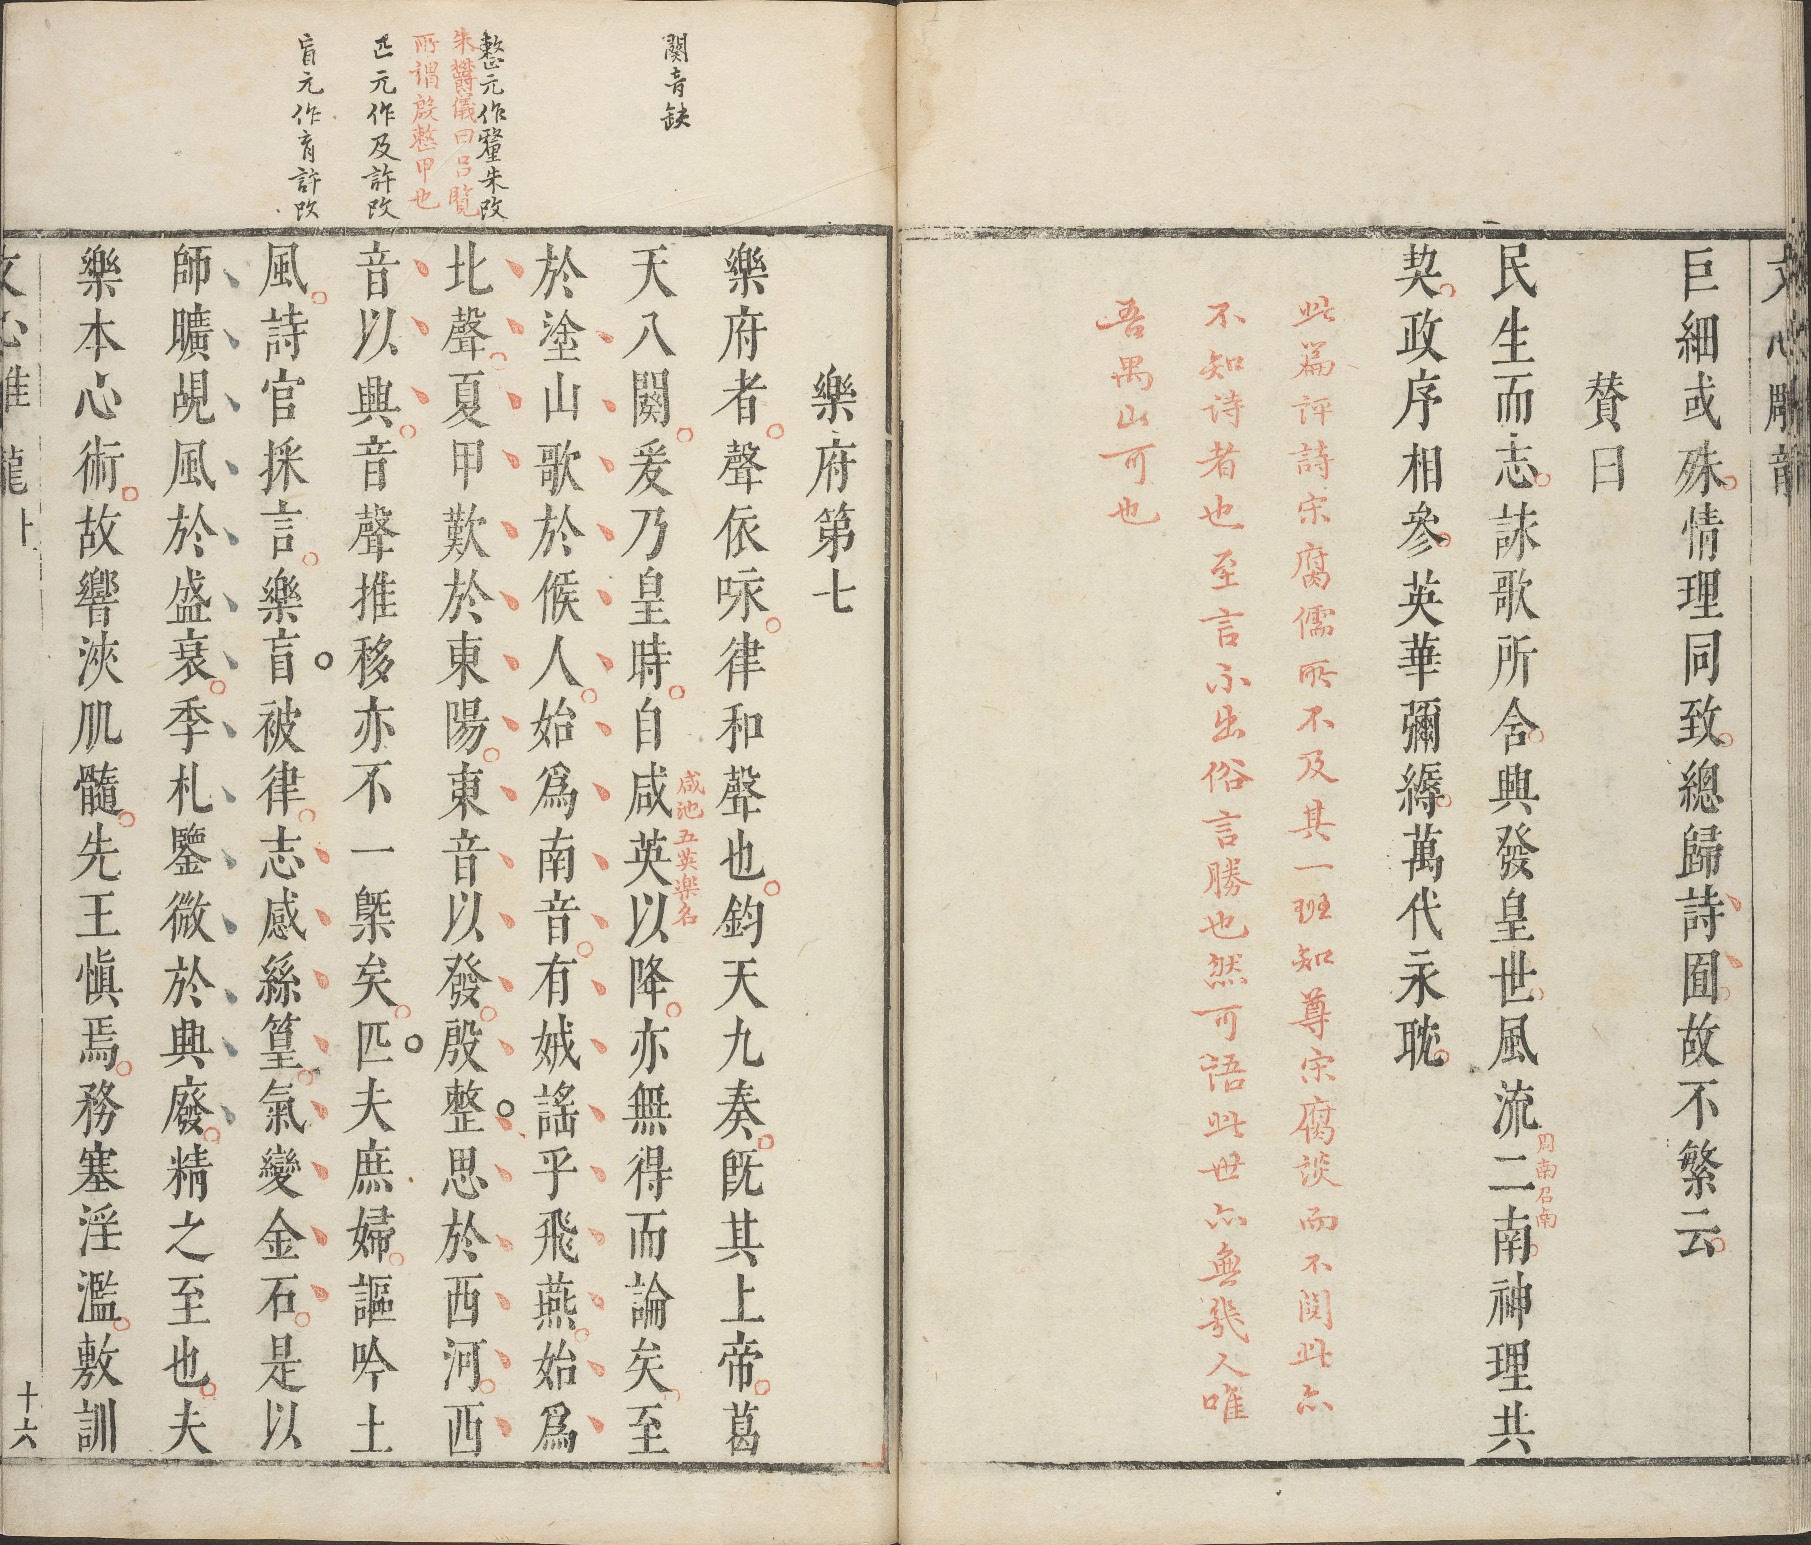 文心雕龍
巨細或殊情理同致總歸詩囿故不繁云
贊曰
民生而志詠歌所含興發皇世風流二南神理共
周南召南
契政序相參英華彌縟萬代永耽
此篇評詩宋腐儒所不及其一班知尊宋腐談而不閱此亦
不知詩者也至言不出俗言勝也然可語此世亦無幾人唯
吾禺山可也
樂府第七
樂府者聲依咏律和聲也鈞天九奏旣其上帝葛
闋音缺
天八闋爰乃皇時自咸英以降亦無得而論矣至
咸池五英樂名
於塗山歌於候人始爲南音有娀謠乎飛燕始爲
整元作釐朱改
朱欝儀曰呂覽
所謂殷整甲也
北聲夏甲歎於東陽東音以發殷整思於西河西
匹元作及許改
音以興音聲推移亦不一槩矣匹夫庶婦謳吟土
盲元作育許改
風詩官採言樂盲被律志感絲篁氣變金石是以
師曠覘風於盛衰季札鑒微於興廢精之至也夫
樂本心術故響浹肌髓先王愼焉務塞淫濫敷訓
文心雕龍上
十六